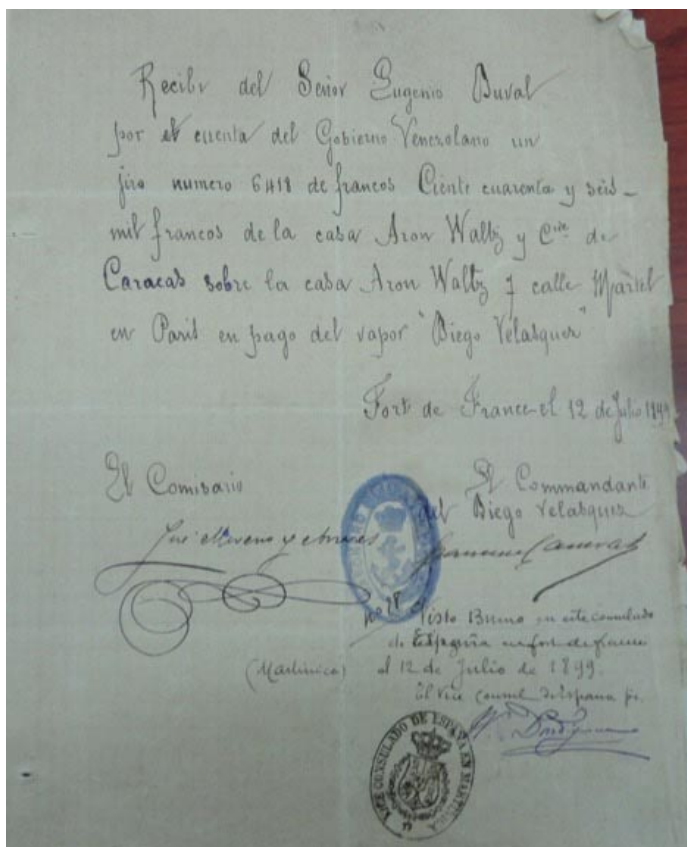 Recibi del Señor Eugenio Duval
por el cuenta del Gobierno Venezolano un
jiro numero 6418 de francos Ciente cuarenta y seis
mil francos de la casa Aron Waltz y Cie de
Caracas sobre la casa Aron Waltz 7 calle Martel
en Paris en pago del vapor "Diego Velasquez"
Fort de France el 12 de Julio 1899
El Comisario
El Commandante
del Diego Velasquez
José Moreno y
no 18
Visto Bueno en este consulado
de España en fort de france
(Martinica) al 12 de Julio de 1899.
El Vice Consul de España
VICE CONSULADO DE ESPAÑA EN MARTINICA